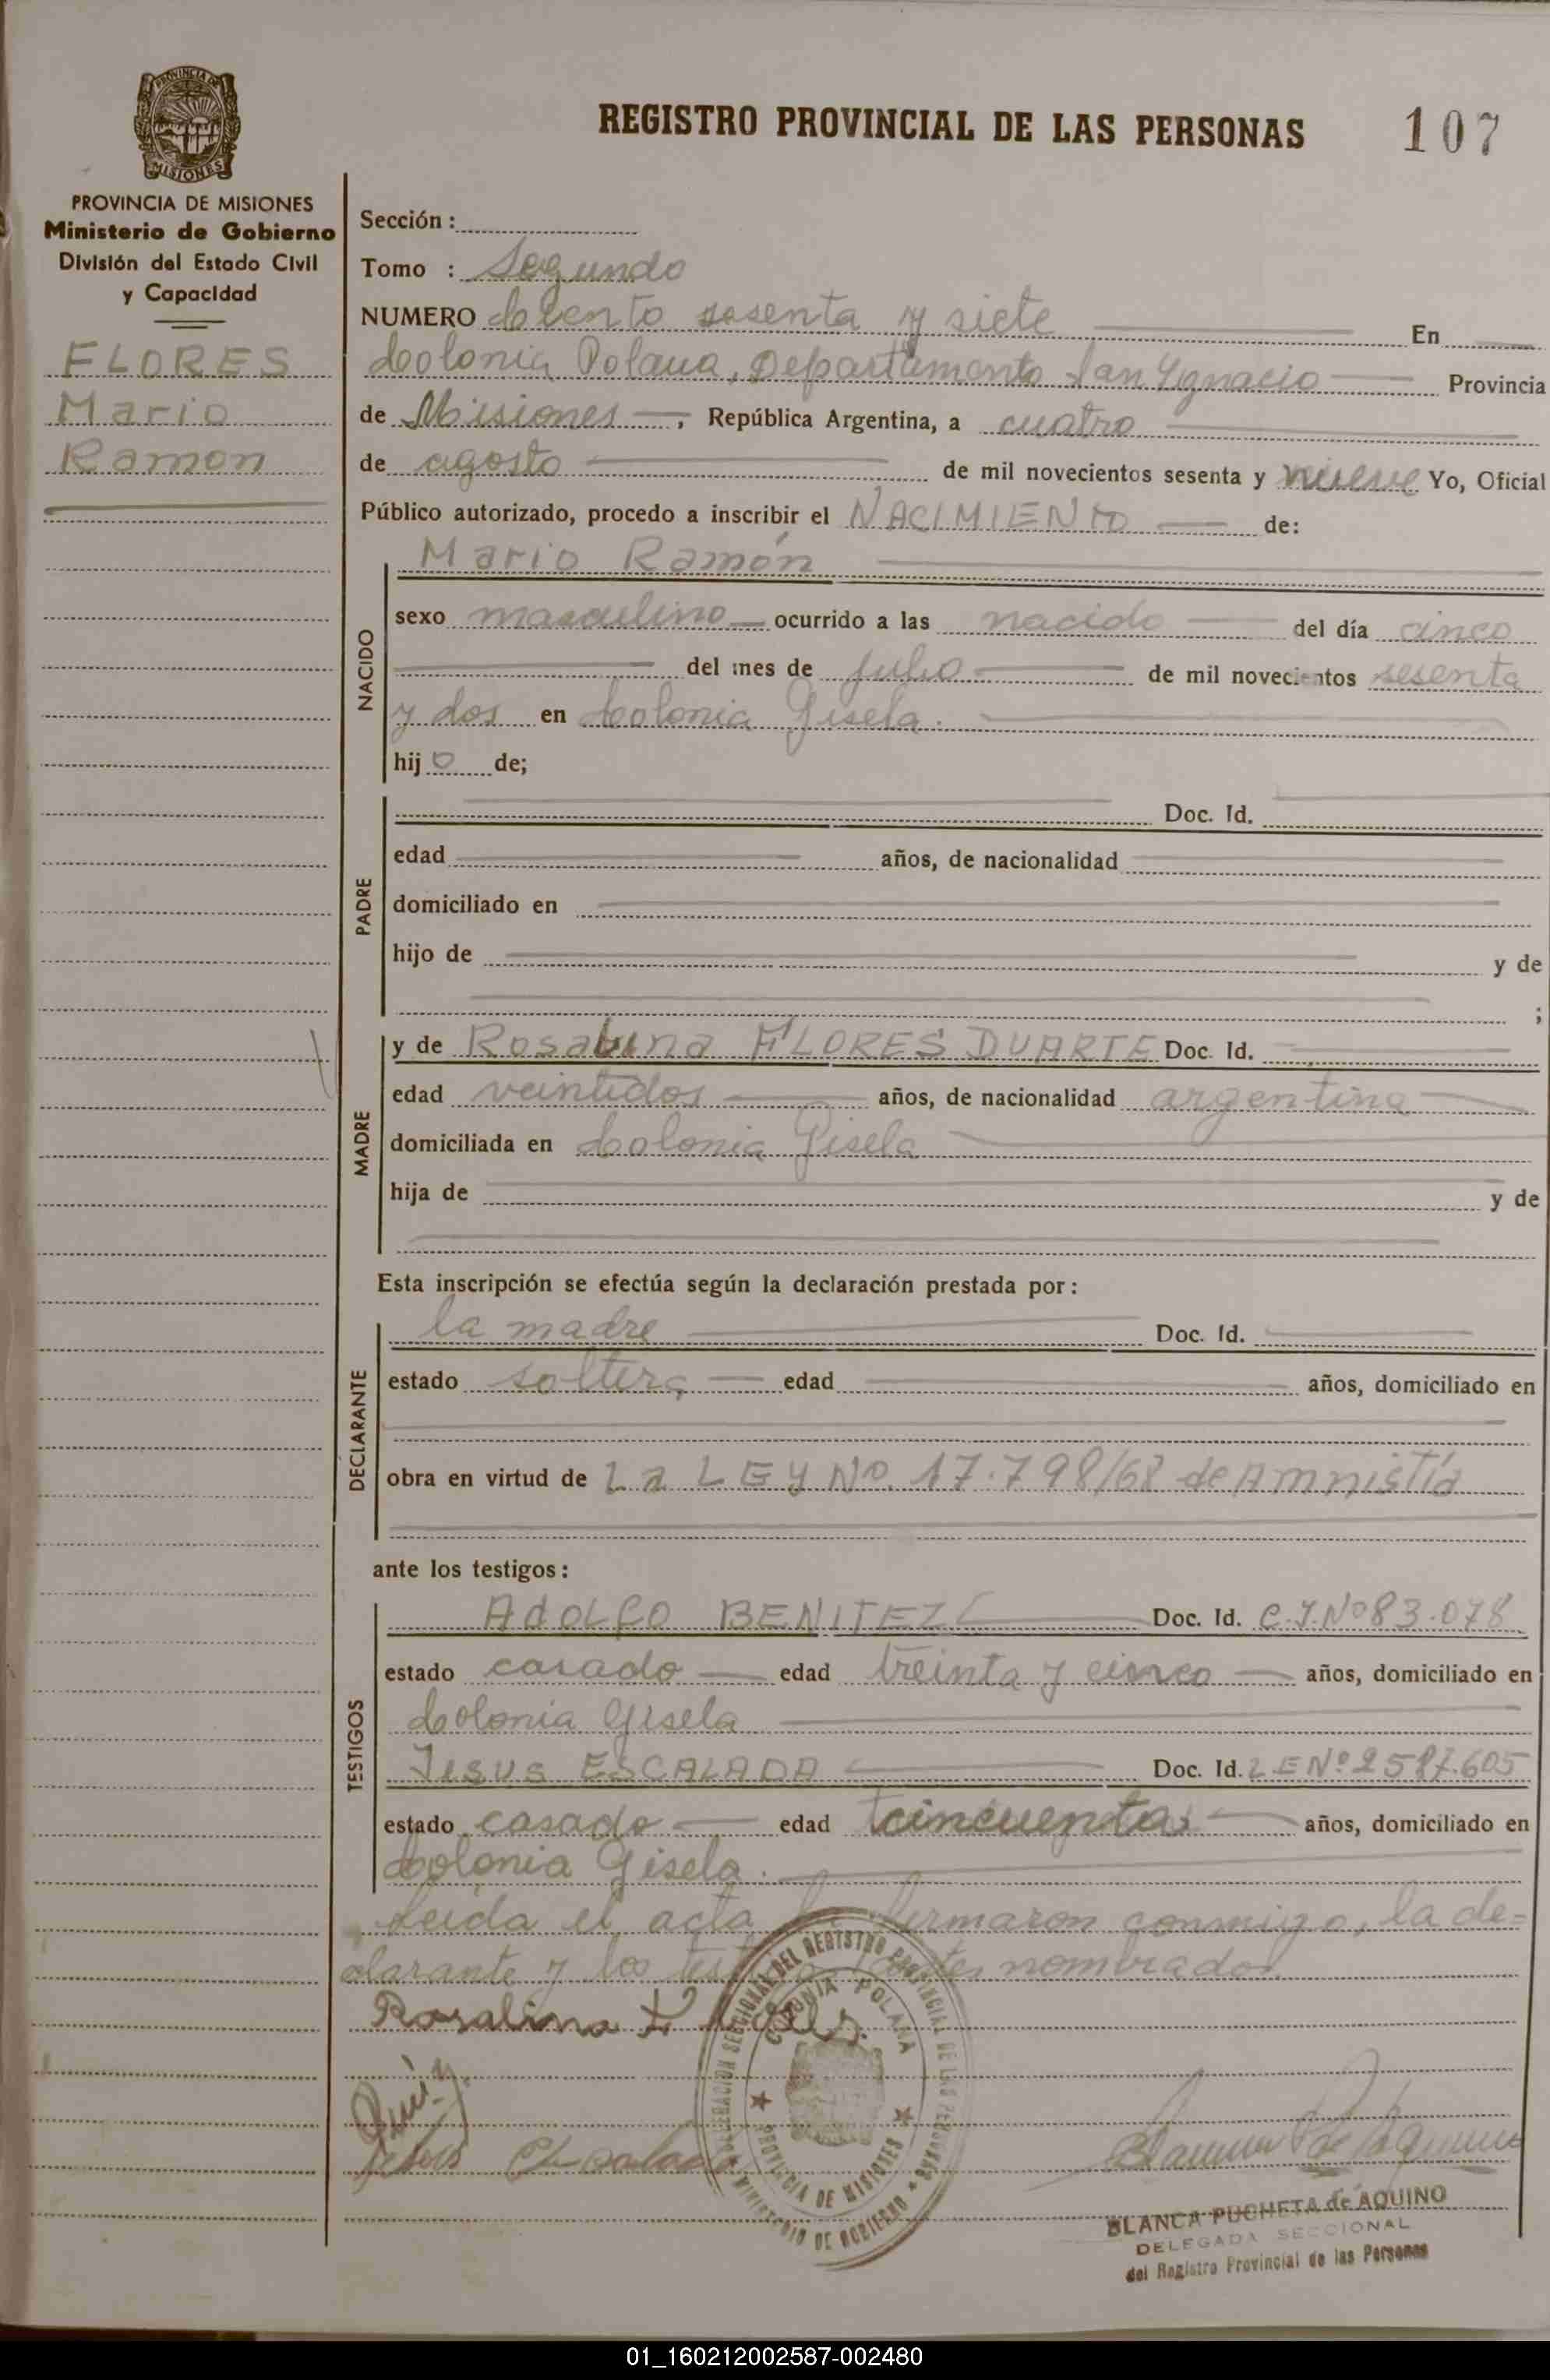 PROVINCIA DE
MISIONES
PROVINCIA DE MISIONES
Ministerio de Gobierno
División del Estado Civil
y Capacidad
FLORES
Mario
Ramon
REGISTRO PROVINCIAL DE LAS PERSONAS 107
Sección :
Tomo : Segundo
NUMERO Ciento sesenta y siete En
Colonia Polana, Departamento San Ygnacio Provincia
de Misiones , República Argentina, a cuatro
de agosto de mil novecientos sesenta y nueve Yo, Oficial
Público autorizado, procedo a inscribir el NACIMIENTO de:
Mario Ramón
NACIDO
sexo masculino ocurrido a las nacido del día cinco
del mes de julio de mil novecientos sesenta
y dos en Colonia Gisela.
hijo de;
PADRE
Doc. Id.
edad años, de nacionalidad
domiciliado en
hijo de y de
;
MADRE
y de Rosalina FLORES DUARTE Doc. Id.
edad veintidos años, de nacionalidad argentina
domiciliada en Colonia Gisela
hija de y de
Esta inscripción se efectúa según la declaración prestada por :
DECLARANTE
la madre Doc. Id.
estado soltera edad años, domiciliado en
obra en virtud de La LEY Nº. 17.798/68 de Amnistía
ante los testigos :
TESTIGOS
Adolfo BENITEZ Doc. Id. C.I.Nº83.078
estado casado edad treinta y cinco años, domiciliado en
Colonia Gisela
Jesus ESCALADA Doc. Id. L E Nº 2587.605
estado casado edad cincuenta años, domiciliado en
Colonia Gisela.
Leida el acta, la firmaron conmigo, la de=
clarante y los testigos antes nombrados.
Rosalina F
Jesus Escalada
DELEGACION SECCIONAL DEL REGISTRO PROVINCIAL DE LAS PERSONAS
COLONIA POLANA
PROVINCIA DE MISIONES
MINISTERIO DE GOBIERNO
BLANCA PUCHETA de AQUINO
DELEGADA SECCIONAL
del Registro Provincial de las Personas
01_160212002587-002480